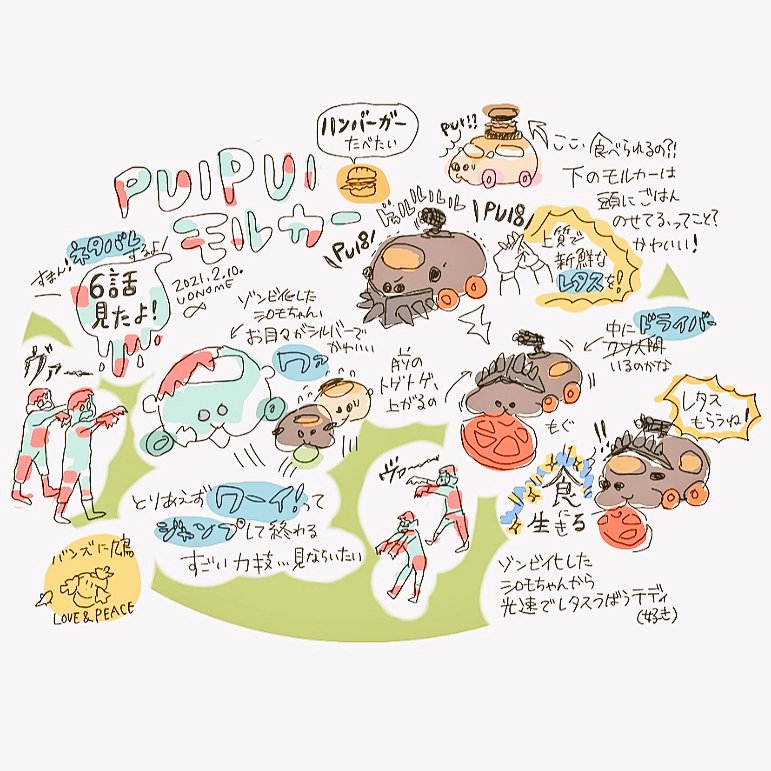 ハンバーガー
たべたい
PUI!!
ここ食べられるの?!
下のモルカーは
頭にごはん
のせてるってこと?
かわいい!
PUIPUI
モルカー
すまん!ネタバレするよ!
6話
見たよ!
2021.2.10.
UONOME
ドゥルルルル
PUI8
PUI8
上質で
新鮮な
レタスを!
ゾンビ化した
シロモちゃん
お目々がシルバーで
かわいい
ワァ
前の
トゲトゲ、
上がるの
中にドライバー
いるのかな
レタス
もらうね!
もぐ
!!
ヴァー
ヴァー
食
に
生きる
とりあえずワーイ!って
ジャンプして終わる
すごい力技…見ならいたい
バンズに鳩
LOVE & PEACE
ゾンビ化した
シロモちゃんから
光速でレタスうばうテディ
(好き)